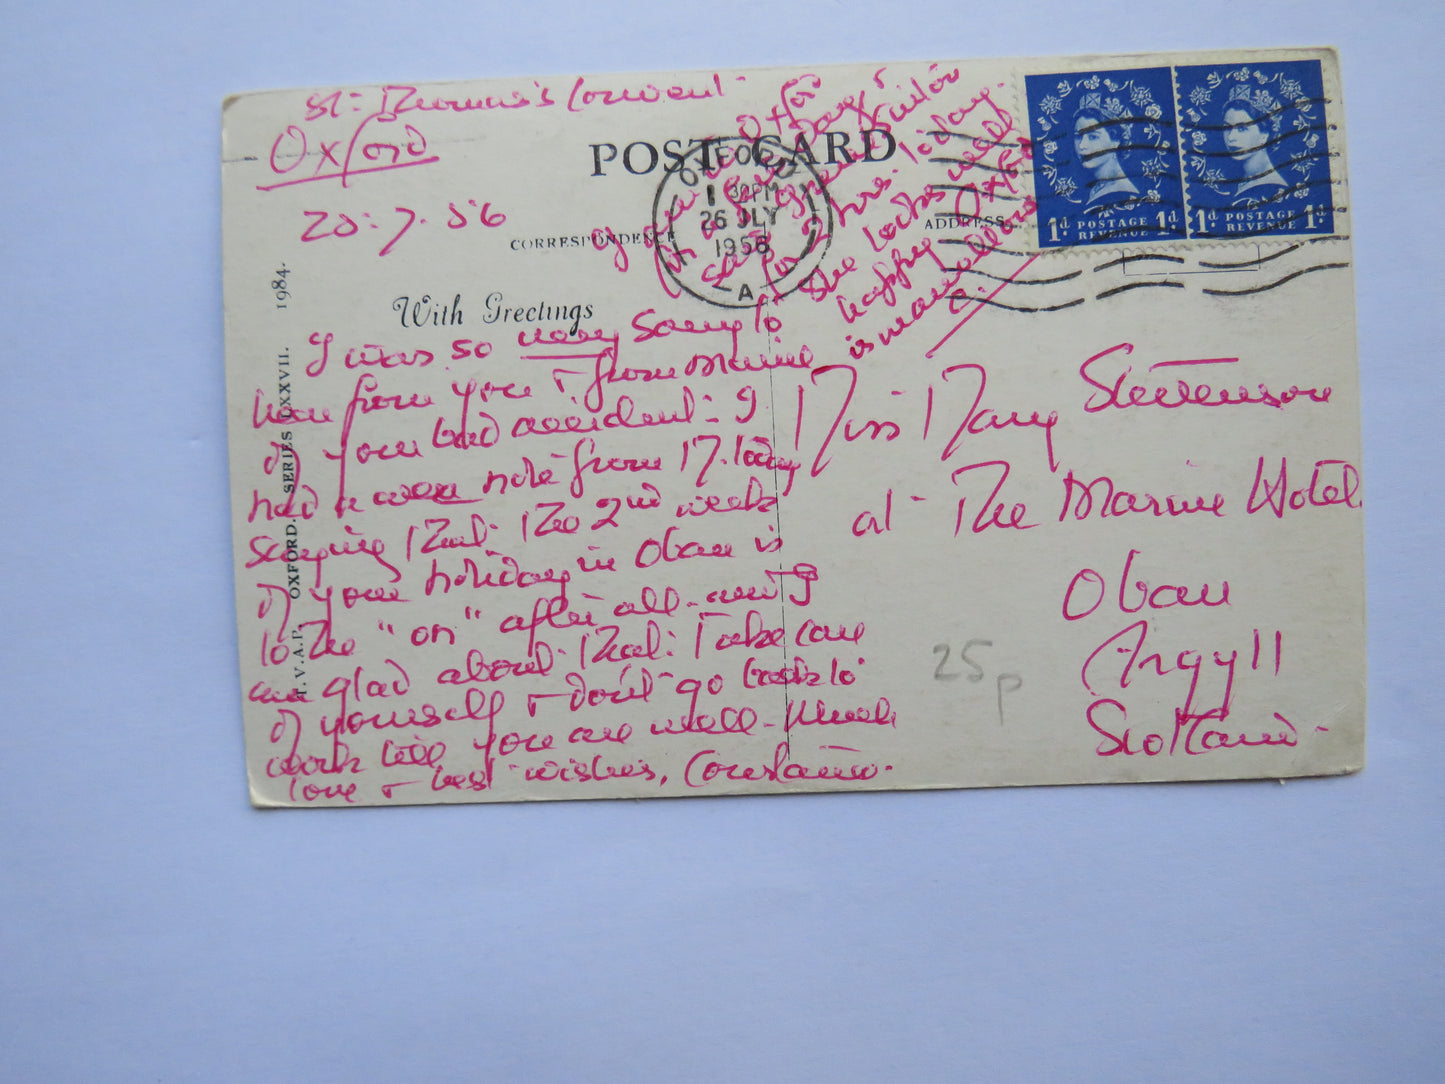 St. Thomas's Convent
Oxford
25.7.56
POST CARD
CORRESPONDENCE
ADDRESS
With Greetings
OXFORD
30PM
26 JLY
1956
A
1d POSTAGE REVENUE 1d
1d POSTAGE REVENUE 1d
T.V.A.P. OXFORD. SERIES LXXVII. 1984.
I was so very sorry to
hear from you & from Maxine
of your bad accident. I
had a note from M. today
saying that the 2nd week
of your holiday in Oban is
to be "on" after all - and I
am glad about that. Take care
of yourself & don't go back to
work till you are well. Much
love & best wishes, Constance.
Oxford
for hrs. today.
She looks well
happy Oxford
is marvellous
Miss Mary Stevenson
at The Marine Hotel
Oban
Argyll
Scotland.
25p